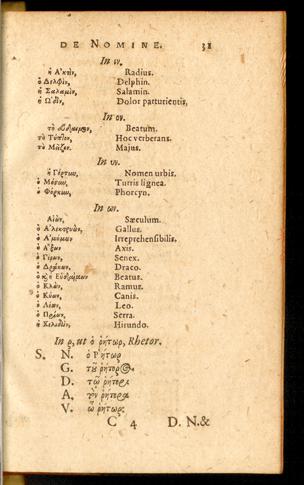 DE NOMINE. 31
In ιν.
ἡ Ἀκτὶν, Radius.
ὁ Δελφὶν, Delphin.
ἡ Σαλαμὶν, Salamin.
ἡ Ὠδὶν, Dolor parturientis.
In ον.
τὸ Beatum.
τὸ Τύπτον, Hoc verberans.
τὸ Μεῖζον. Majus.
In υν.
ἡ Γόρτυν, Nomen urbis.
ὁ Μόσυν, Turris lignea.
ὁ Φόρκυν, Phorcyn.
In ων.
Αἰὼν, Sæculum.
ὁ Ἀλεκτρυὼν, Gallus.
ὁ Ἀμύμων Irreprehensibilis.
ὁ Ἄξων Axis.
ὁ Γέρων, Senex.
ὁ Δράκων, Draco.
ὁ καὶ ἡ Εὐδαίμων Beatus.
ὁ Κλὼν, Ramus.
ὁ Κύων, Canis.
ὁ Λέων, Leo.
ὁ Πρίων, Serra.
ἡ Χελιδὼν, Hirundo.
In ρ, ut ὁ ῥήτωρ, Rhetor.
S. N. ὁ Ῥήτωρ
G. τοῦ ῥήτορος.
D. τῷ ῥήτορι.
A. τὸν ῥήτορα.
V. ὦ ῥῆτορ.
C 4 D. N.&